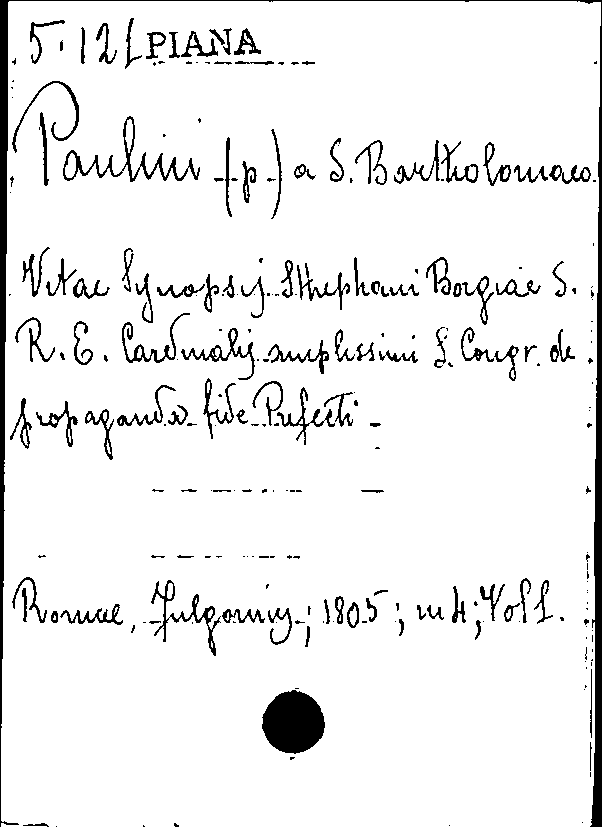 5.12[PIANA
Paulini (p.) a S. Bartholomaeo.
Vitae Synopsis Sthephani Borgiae S.
R. E. Cardinalis amplissimi S. Congr. de
propaganda fide Prefecti -
Romae, Fulgonius; 1805; in 4; Vol 1.